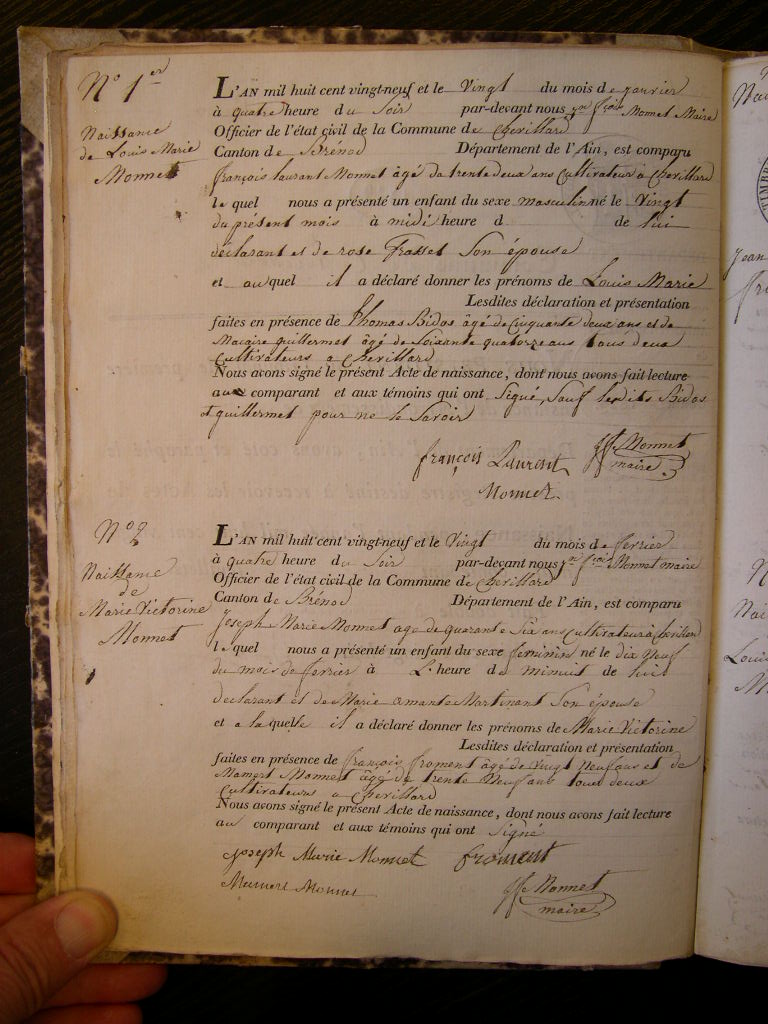 N° 1er
Naissance
de Louis Marie
Monnet
L'AN mil huit cent vingt-neuf et le Vingt du mois de janvier
à quatre heure du Soir par-devant nous Monnet Maire
Officier de l'état civil de la Commune de Chevillard
Canton de Brénod Département de l'Ain, est comparu
françois laurant Monnet âgé da trente deux ans Cultivateur a Chevillard
le quel nous a présenté un enfant du sexe masculin né le Vingt
du présent mois à midi heure d de lui
déclarant et de rose Frasset Son épouse
et au quel il a déclaré donner les prénoms de Louis Marie
Lesdites déclaration et présentation
faites en présence de Thomas Bidos âgé de Cinquante deux ans et de
Macaire guillermet âgé de Soixante quatorze ans tous deux
Cultivateurs a Chevillard
Nous avons signé le présent Acte de naissance, dont nous avons fait lecture
aux comparant et aux témoins qui ont Signé, Sauf lesdits Bidos
et guillermet pour ne le Savoir
françois Laurent Monnet
maire
Monnet
N° 2
Naissance
de
Marie Victorine
Monnet
L'AN mil huit cent vingt-neuf et le Vingt du mois de fevrier
à quatre heure du Soir par-devant nous Monnet maire
Officier de l'état civil de la Commune de Chevillard
Canton de Brénod Département de l'Ain, est comparu
Joseph Marie Monnet age de quarante Six ans cultivateur à Chevillard
le quel nous a présenté un enfant du sexe feminin né le dix Neuf
du mois de fevrier à L' heure de minuit de lui
declarant et de Marie amante Martinant Son épouse
et a la quelle il a déclaré donner les prénoms de Marie Victorine
Lesdites déclaration et présentation
faites en présence de françois froment âgé de Vingt Neuf ans et de
Mamert Monnet âgé de trente Neuf ans tous deux
Cultivateurs a Chevillard
Nous avons signé le présent Acte de naissance, dont nous avons fait lecture
au comparant et aux témoins qui ont Signé
Joseph Marie Monnet froment
Mamert Monnet Monnet
maire